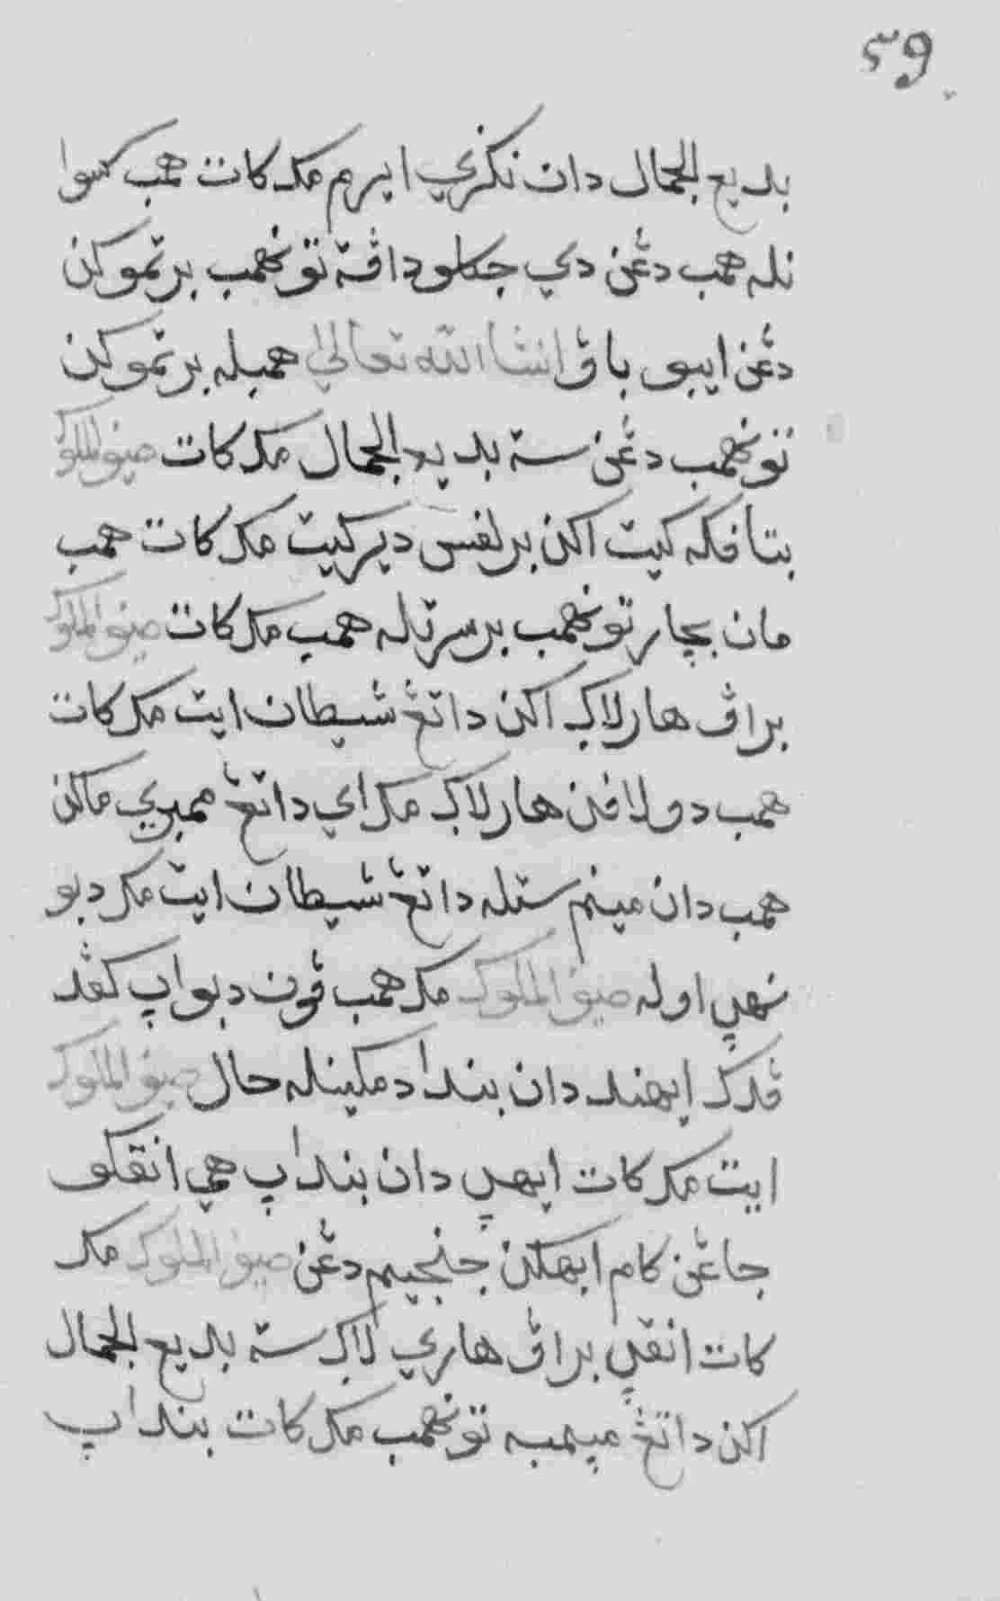 ٥٩
بديع الجمال دان نڬري ايرم مک کات همب کسوا
نله همب دڠن دي جکلو داڤة تونهمب برتموکن
دڠن ايبو باڤ انشاالله تعالى همبله برتموکن
تونهمب دڠن ستة بديع الجمال مک کات صيف الملوک
بتاڤکه کيت اکن برلڤس ديرکيت مک کات همب
مان بچار تونهمب برسرتاله همب مک کات صيف الملوک
براڤ هار لاݢ اکن داتڠ شيطان ايت مک کات
همب دولاڤن هار لاݢ مک اي داتڠ ممبري ماکن
همب دان مينم ستله داتڠ شيطان ايت مک دبو
نهڽ اوله صيف الملوک مک همب ڤون دبواڽ کڤد
ڤدڠ ايهند دان بندا دمکينله حال صيف الملوک
ايت مک کات ايهڽ دان بنداڽ هي انقکو
جاڠن کام ابهکن جنجيم دڠن صيف الملوک مک
کات انقڽ براڤ هاري لاݢ ستة بديع الجمال
اکن داتڠ ميمبه تونهمب مک کات بنداڽ